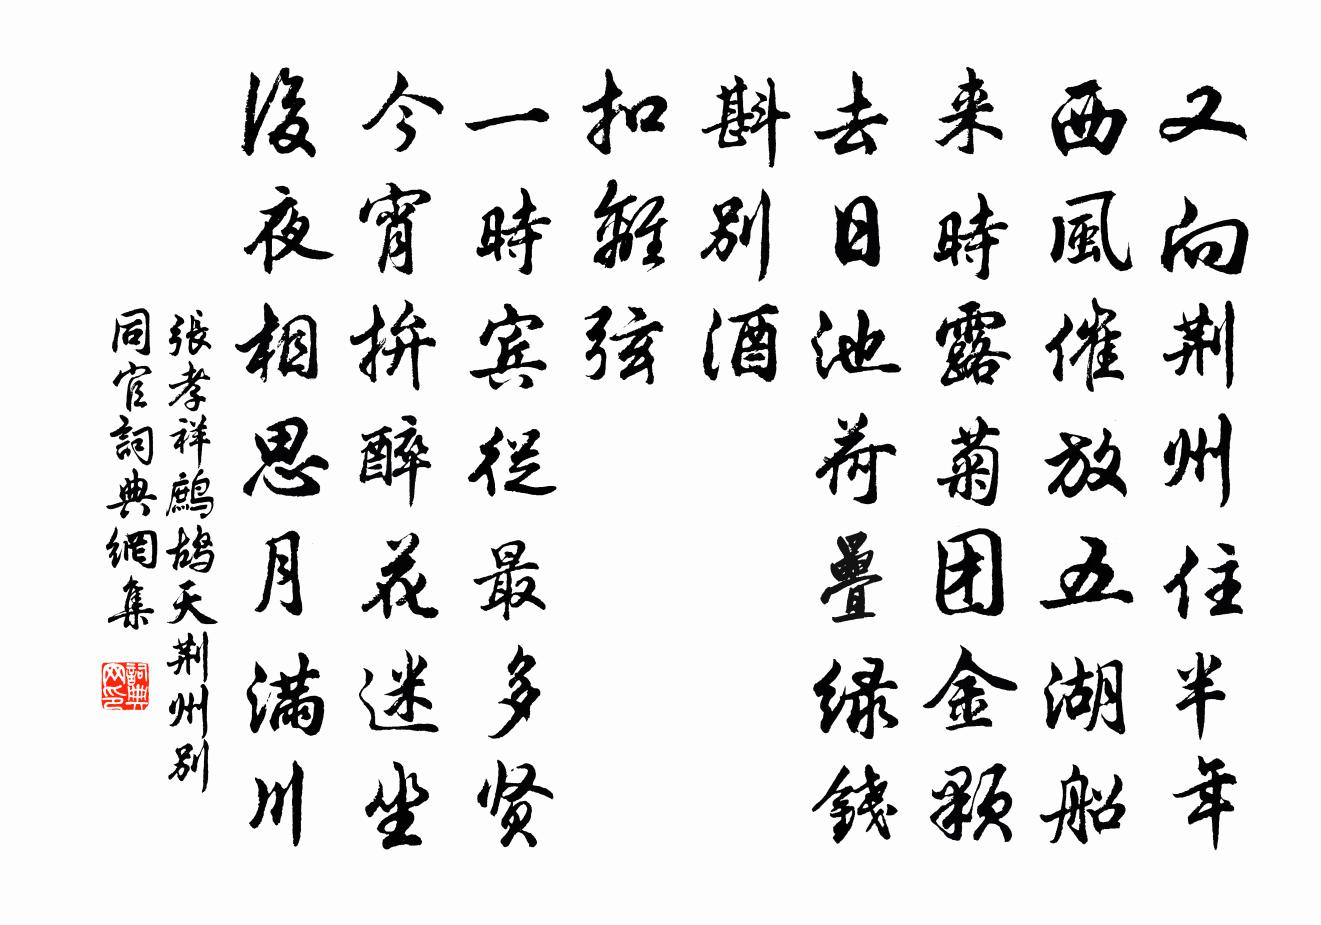 又向荆州住半年
西風催放五湖船
来時露菊团金颗
去日池荷疊绿錢
斟别酒
扣離弦
一時宾從最多贤
今宵拚醉花迷坐
後夜相思月满川
張孝祥鷓鴣天荆州别
同官詞典網集
詞典网印